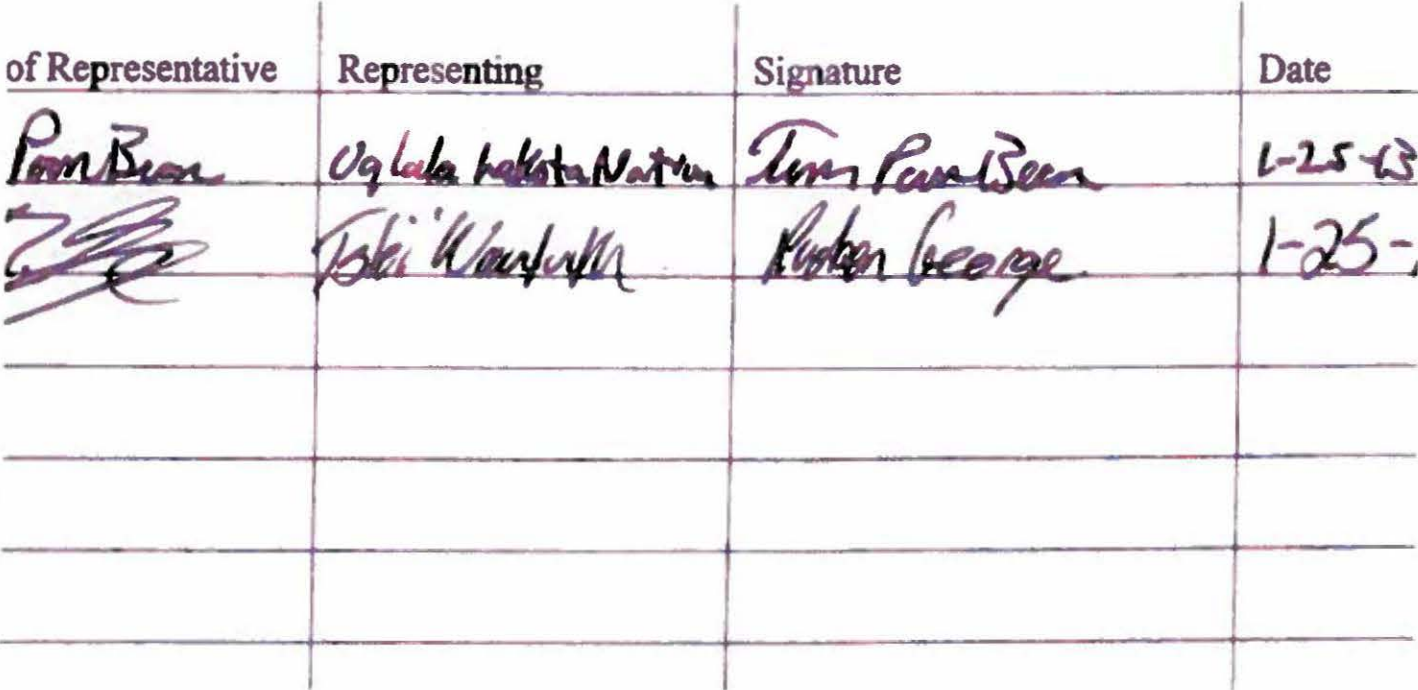 of Representative Representing Signature Date
Poor Bear Oglala Lakota Nation Tom Poor Bear 1-25-13
Rueben George 1-25-